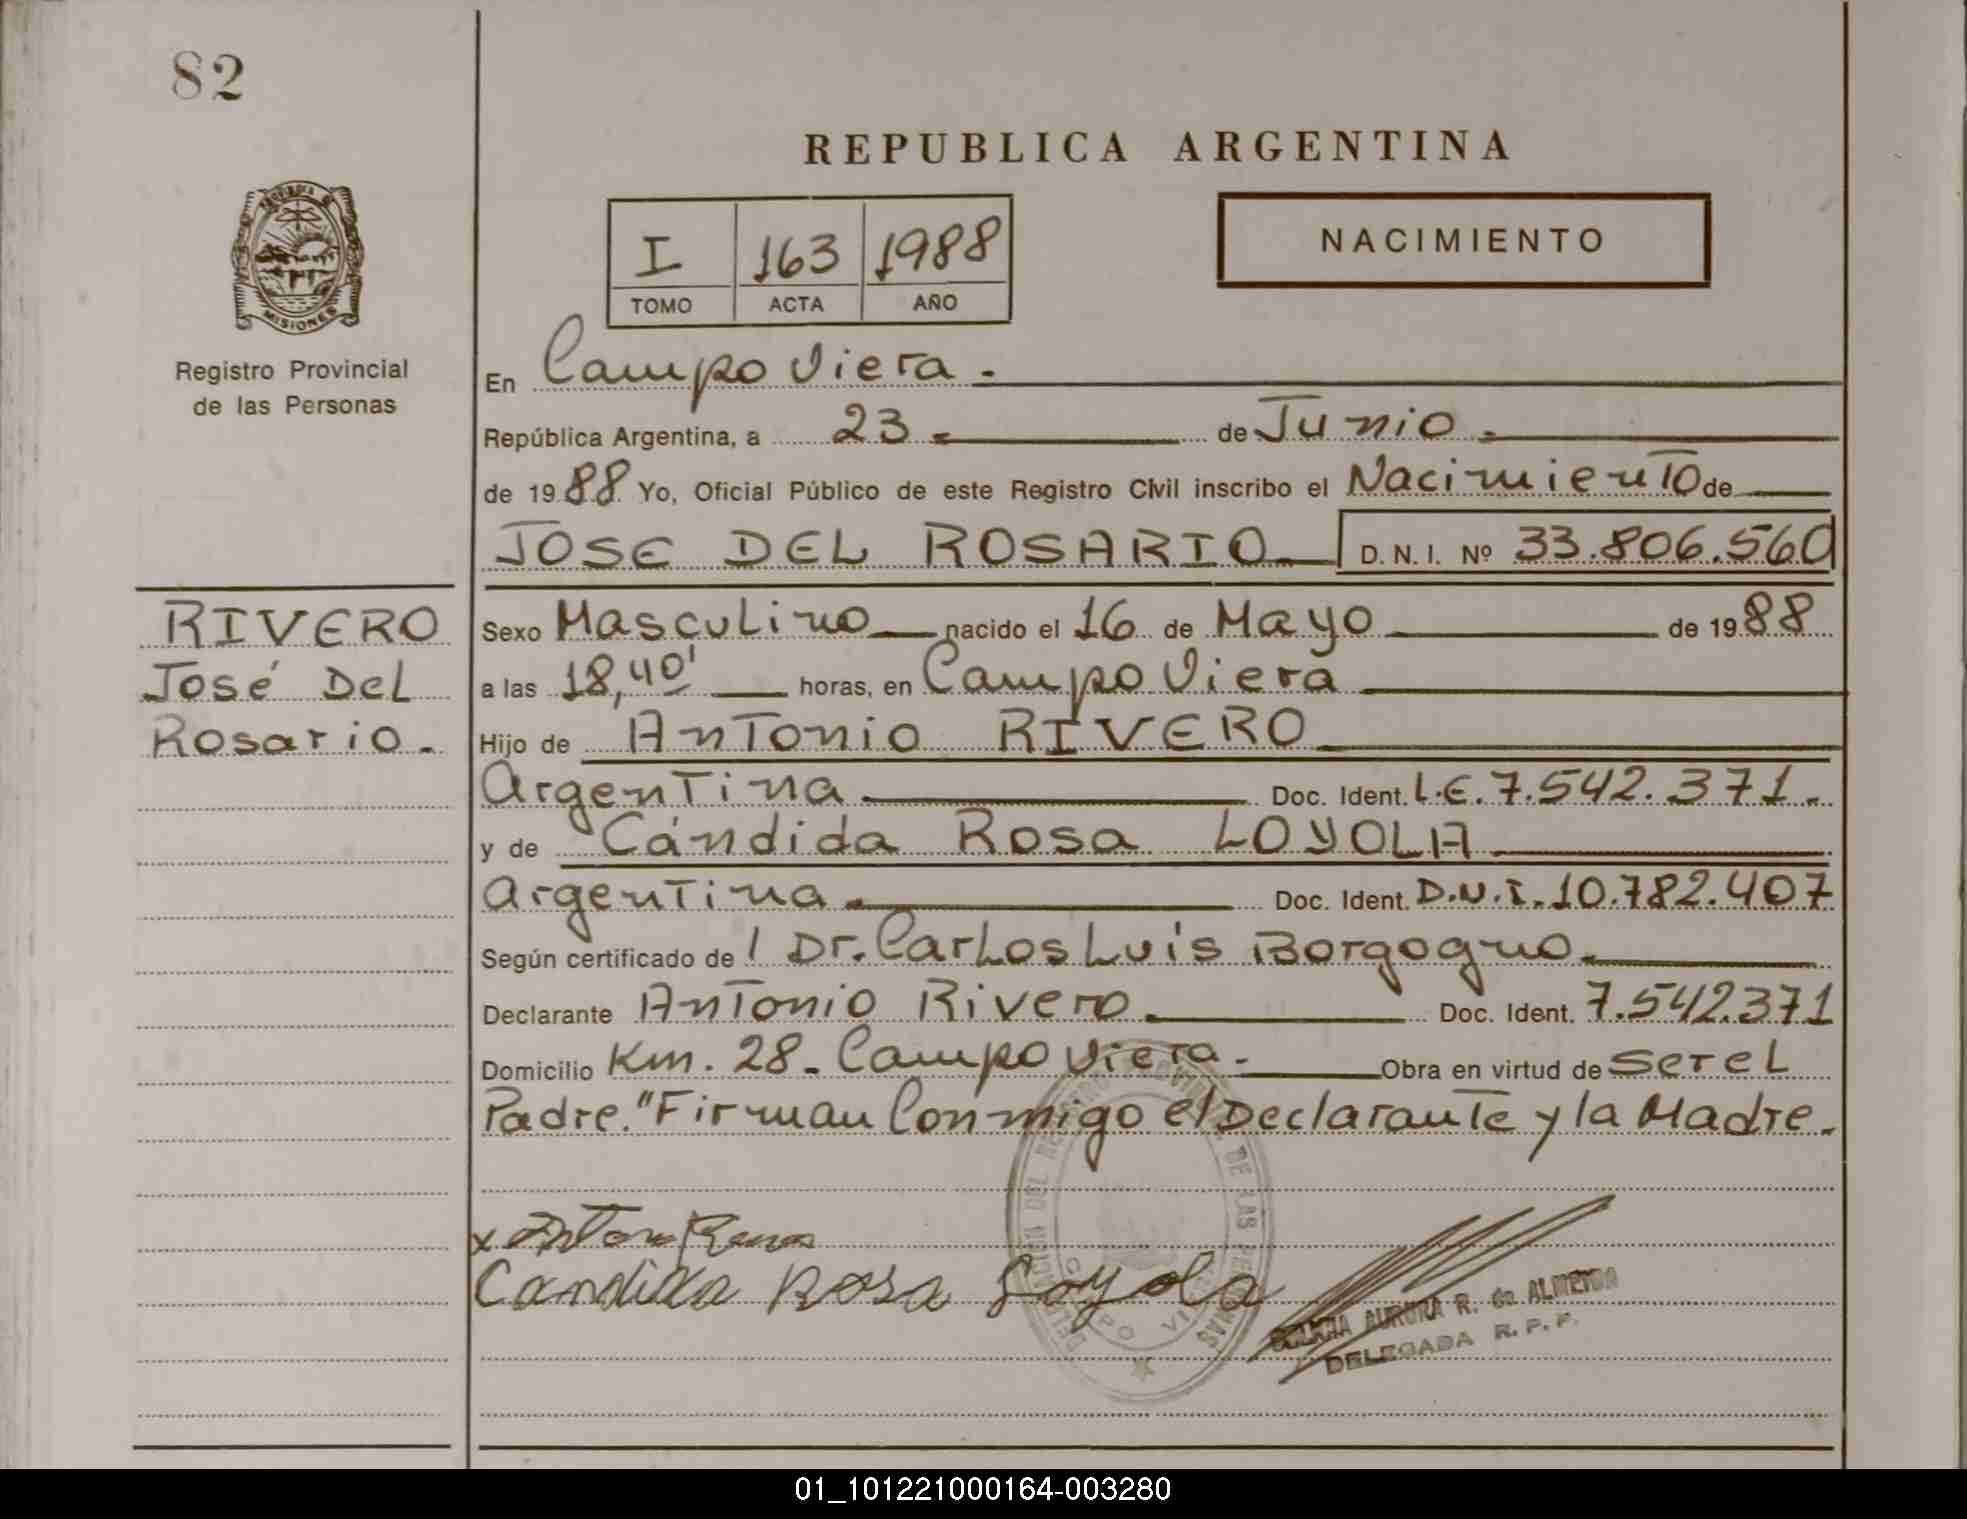 82
REPUBLICA ARGENTINA
NACIMIENTO
I 163 1988
TOMO ACTA AÑO
MISIONES
Registro Provincial
de las Personas
En Campo Viera.
República Argentina, a 23 de Junio
de 1988 Yo, Oficial Público de este Registro Civil inscribo el Nacimiento de
JOSE DEL ROSARIO D. N. I. Nº 33.806.560
RIVERO
José Del
Rosario.
Sexo Masculino nacido el 16 de Mayo de 1988
a las 18,40' horas, en Campo Viera
Hijo de Antonio RIVERO
Argentina Doc. Ident. L.E. 7.542.371.
y de Cándida Rosa LOYOLA
Argentina Doc. Ident. D.N.I. 10.782.407
Según certificado de l Dr. Carlos Luis Borgogno.
Declarante Antonio Rivero. Doc. Ident. 7.542.371
Domicilio Km. 28 - Campo Viera. Obra en virtud de ser el
Padre. "Firman Conmigo el Declarante y la Madre.
x
Candida Rosa Loyola
AURORA R. de ALMEIDA
DELEGADA R. P. P.
01_101221000164-003280